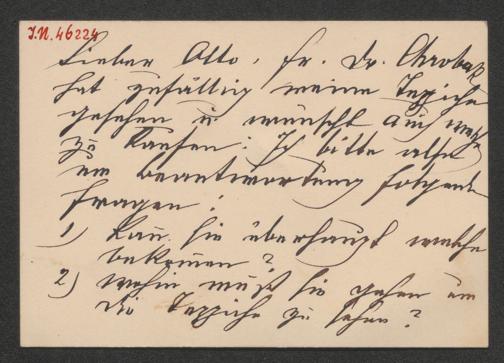 I.N. 46224
Lieber Otto, Fr. Dr. Chrobak
hat zufällig meine Teppiche
gesehen u wünscht auch welche
zu kaufen: Ich bitte also
um Beantwortung folgender
Fragen:
1) Kann sie überhaupt welche
bekommen?
2) wohin muß sie gehen um
die Teppiche zu sehen?